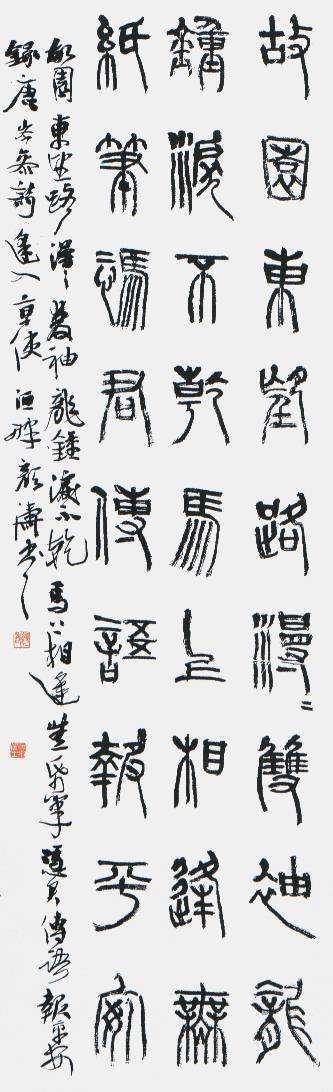 故園東望路漫〻雙袖龍
鍾淚不乾馬上相逢無
紙筆馮君傳語報平安
故園東望路漫〻雙袖龍鍾淚不乾馬上相逢無紙筆憑君傳語報平安
錄唐岑參詩逢入京使顏濤書